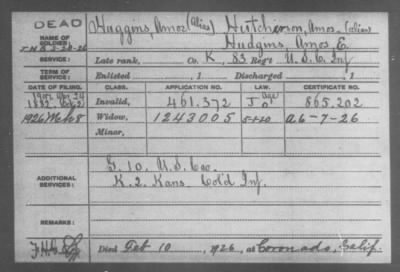 DEAD
NAME OF SOLDIER:
Huggins, Amos (Alias) Hutchinson, Amos. (alias
Hudgins, Amos E.
SERVICE:
Late rank, Co. K, 83 Reg't U.S.C. Inf
TERM OF SERVICE:
Enlisted , 1 Discharged , 1
DATE OF FILING. CLASS. APPLICATION NO. LAW. CERTIFICATE NO.
1882 Invalid, 461.372 J Age 865.202
1926 Mch 8 Widow, 1243005 5-1-20 A6-7-26
Minor,
ADDITIONAL SERVICES:
G. 10. K.S. Co.
K. 2 Kans Col'd Inf.
REMARKS:
Died Feb 10, 1926, at Coronado, Calif.